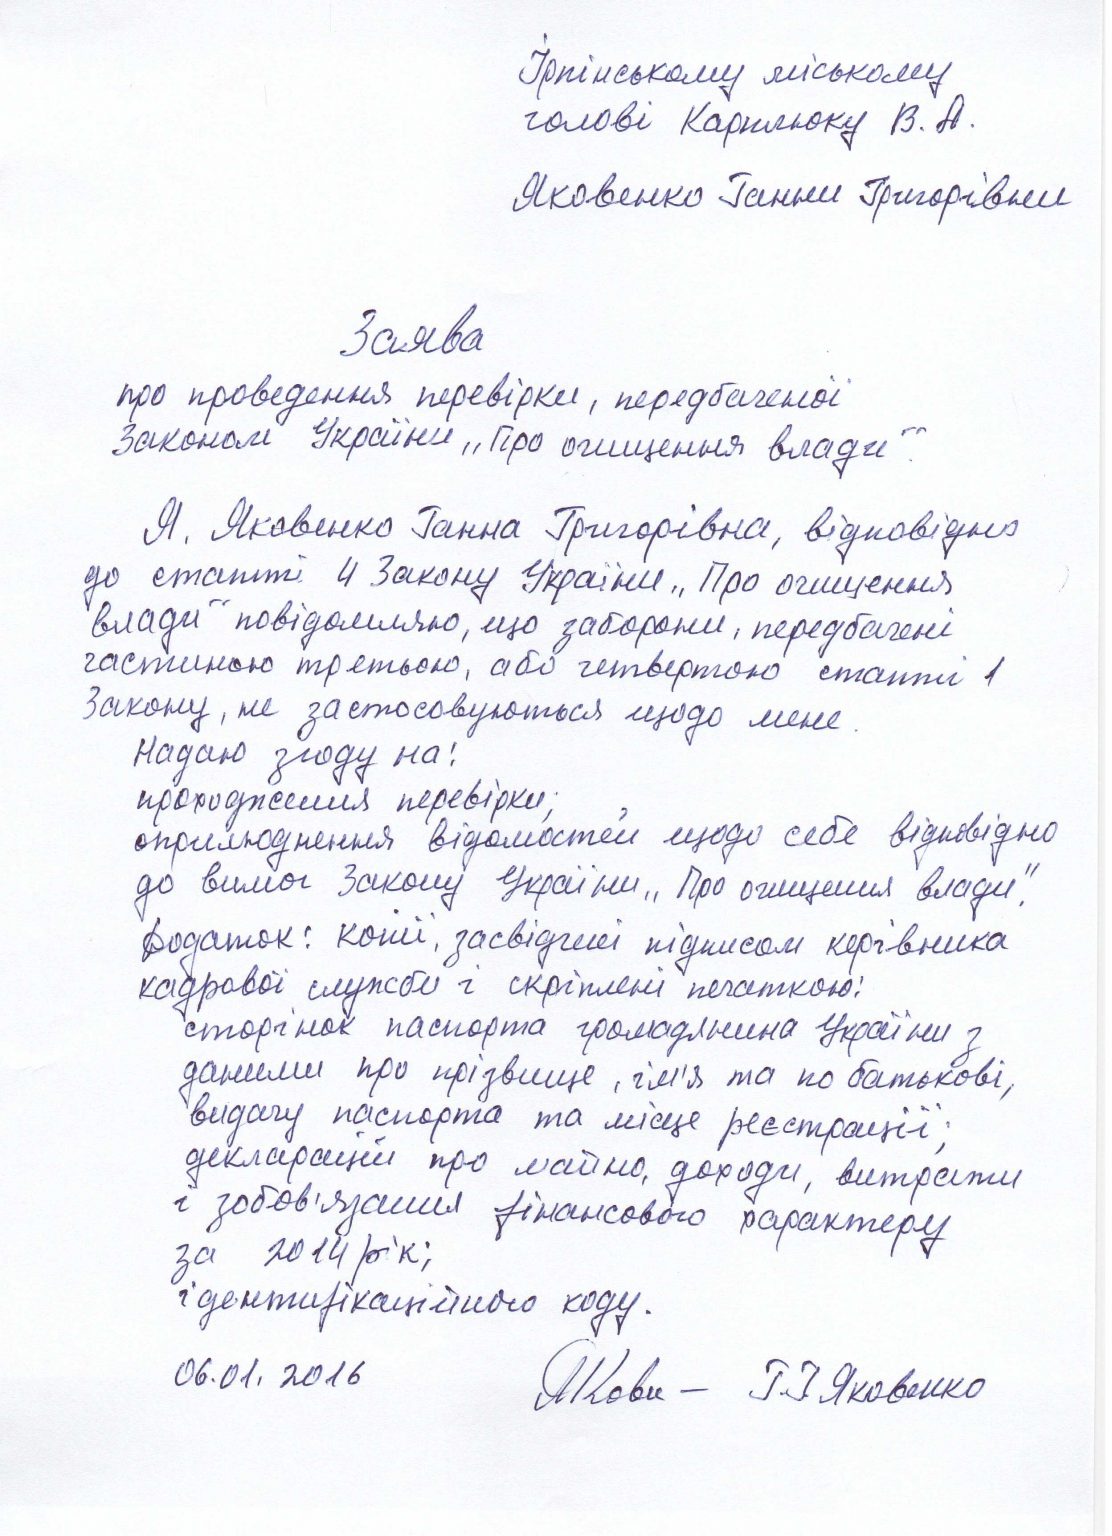 Ірпінському міському
голові Карплюку В. А.
Яковенко Ганни Григорівни
Заява
про проведення перевірки, передбаченої
Законом України „Про очищення влади".
Я, Яковенко Ганна Григорівна, відповідно
до статті 4 Закону України „Про очищення
влади" повідомляю, що заборони, передбачені
частиною третьою, або четвертою статті 1
Закону, не застосовуються щодо мене.
Надаю згоду на:
проходження перевірки;
оприлюднення відомостей щодо себе відповідно
до вимог Закону України „Про очищення влади".
Додаток: копії, засвідчені підписом керівника
кадрової служби і скріплені печаткою:
сторінок паспорта громадянина України з
даними про прізвище, ім'я та по батькові,
видачу паспорта та місце реєстрації;
декларації про майно, доходи, витрати
і зобов'язання фінансового характеру
за 2014 рік;
ідентифікаційного коду.
06.01.2016 Г.Г Яковенко